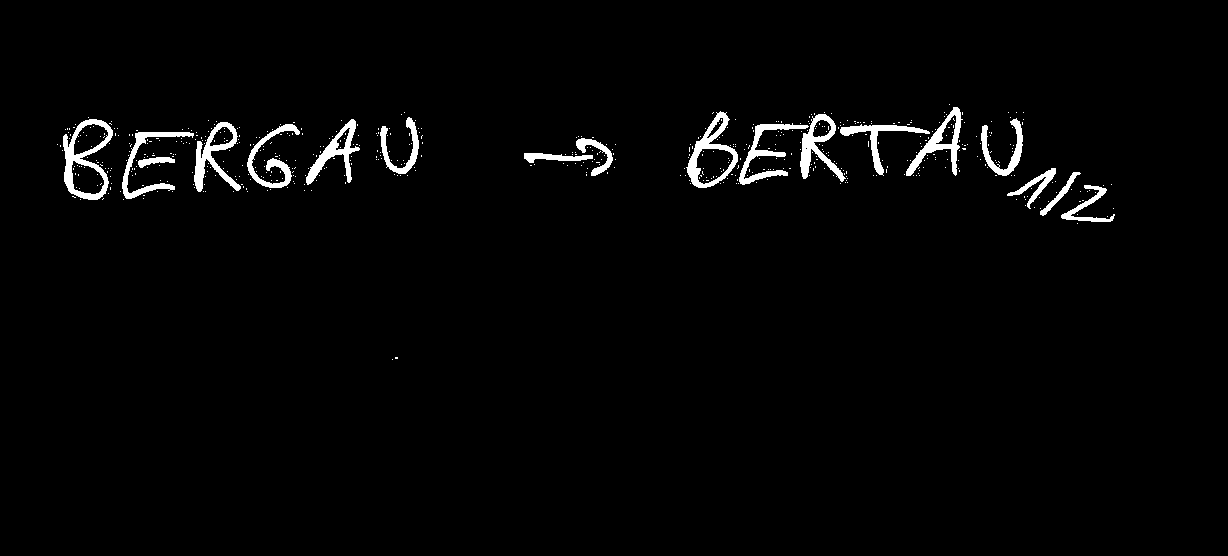 BERGAU → BERTAU 1/2